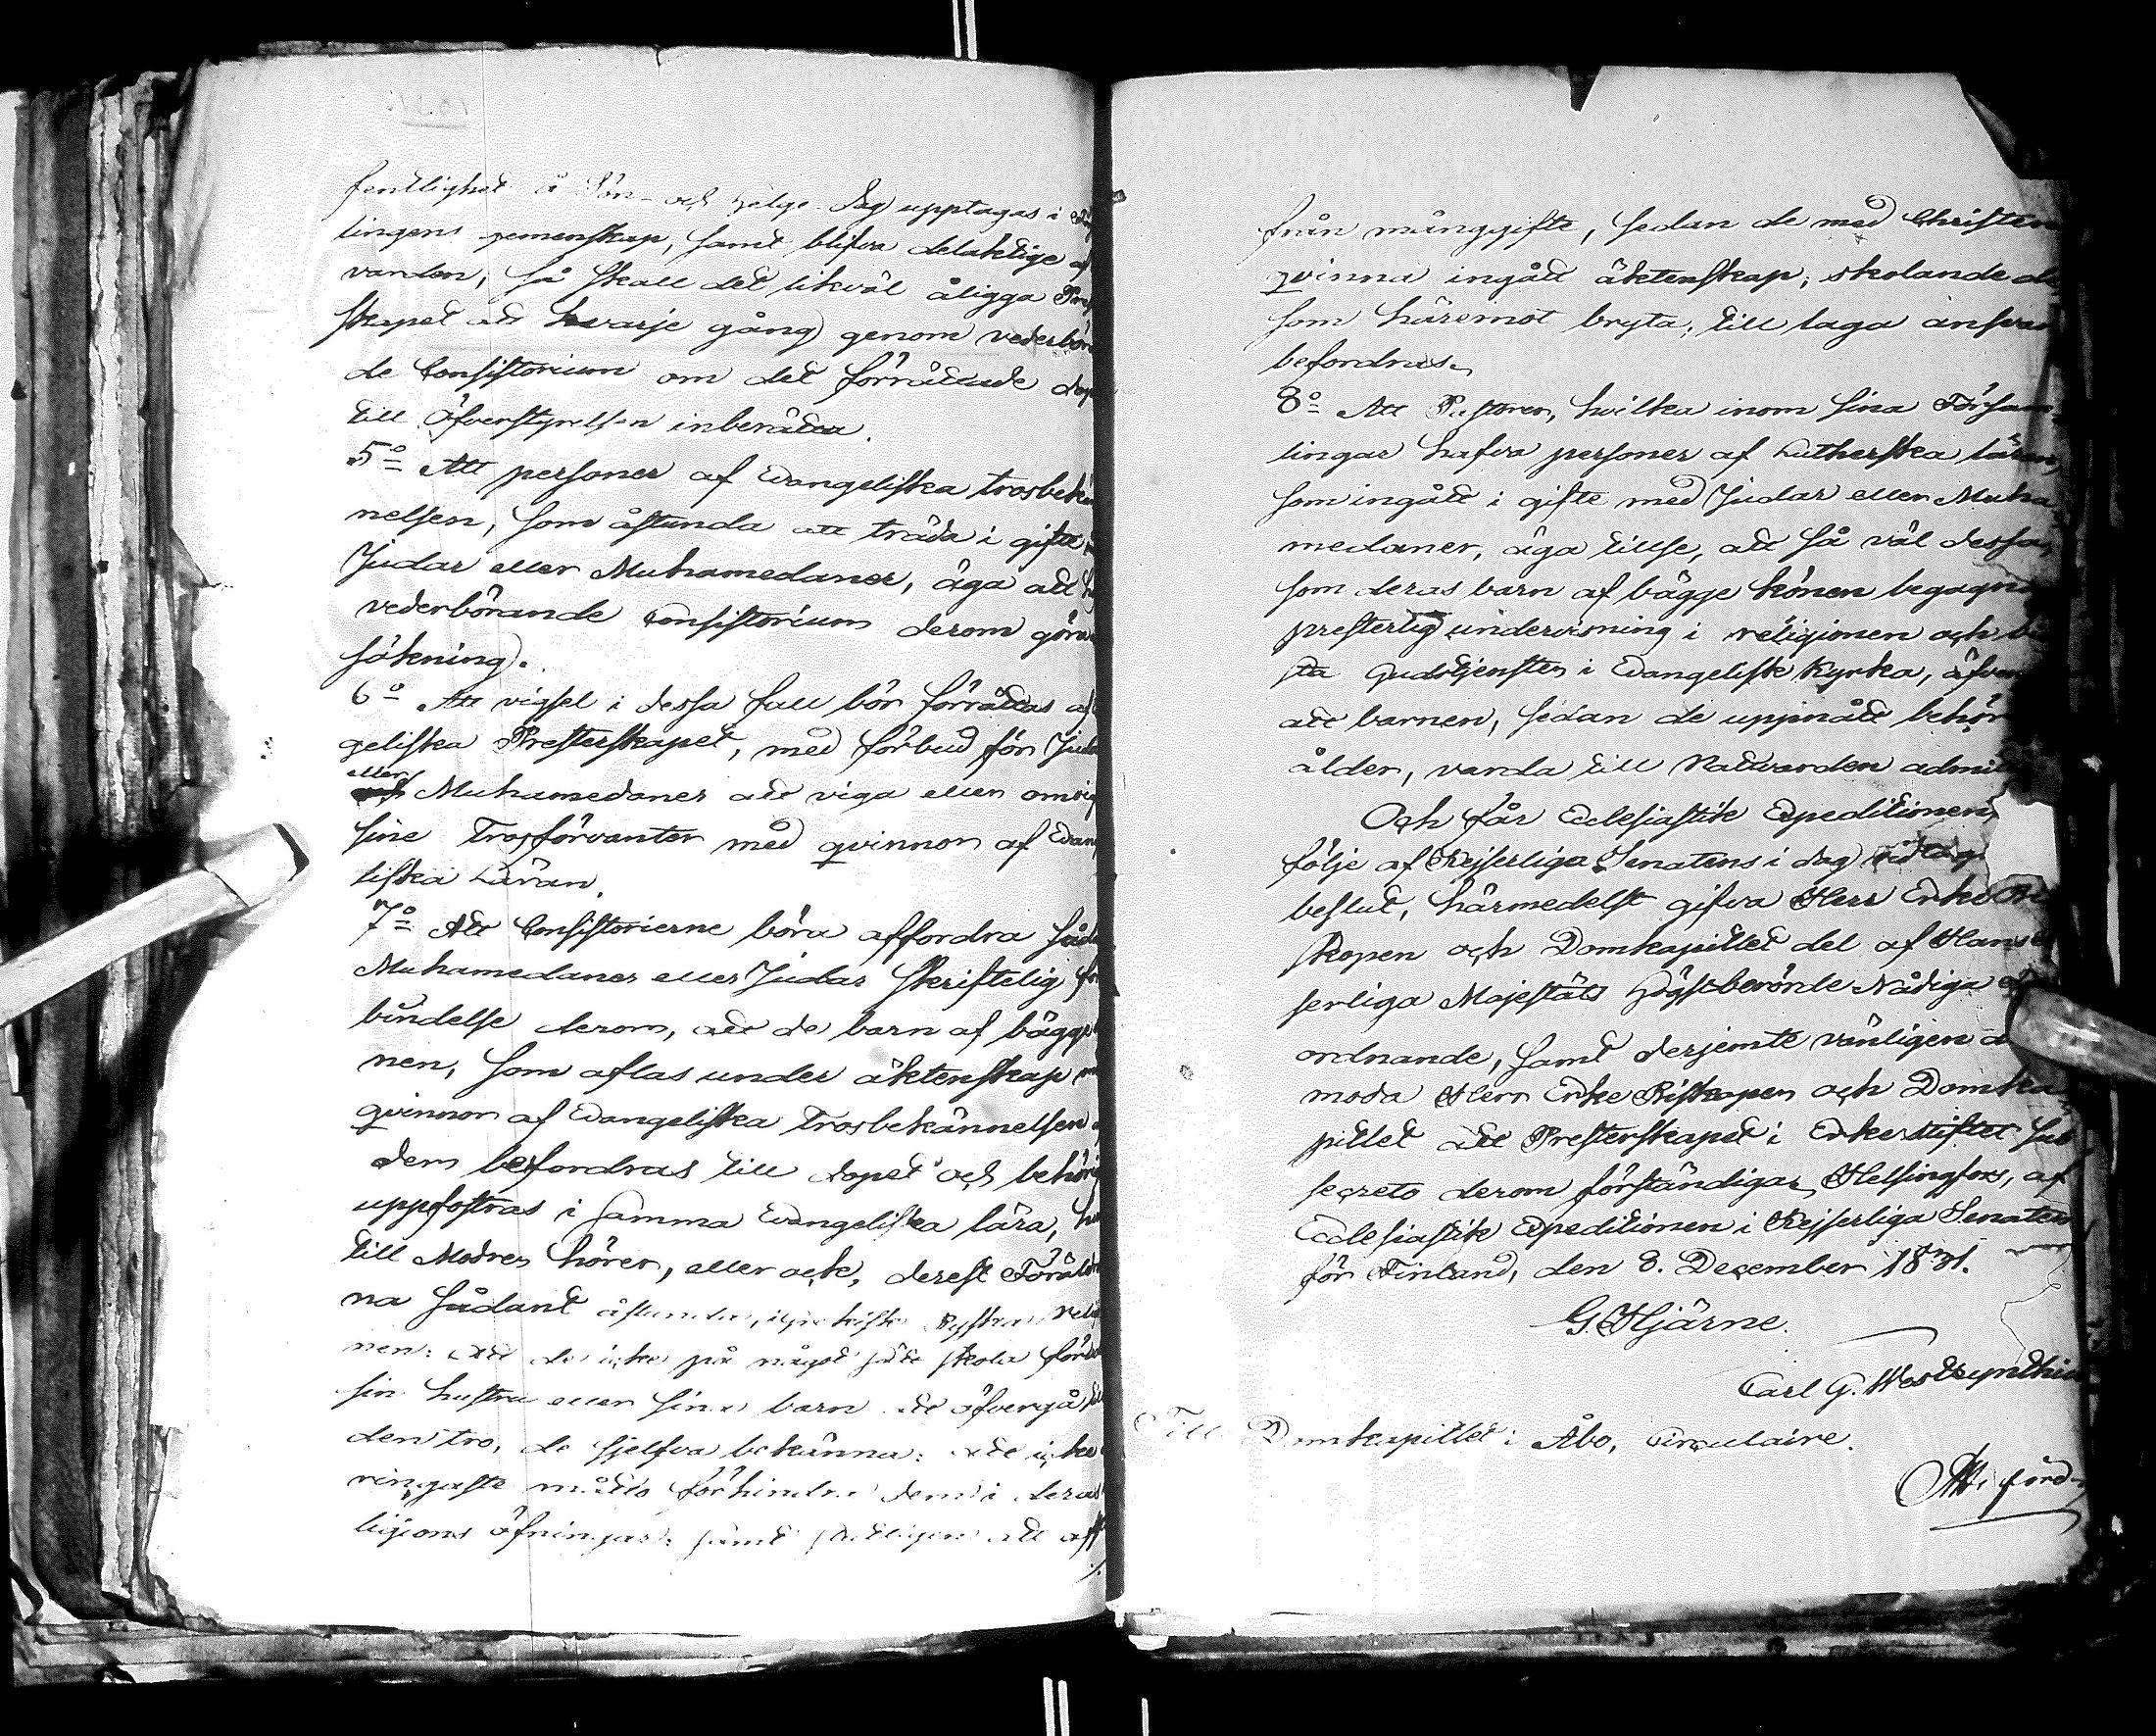 fentlighet å Sön- och Helge-Dag upptagas i
lingens gemenskap, samt blifva delaktige af
varden, så skall det likväl åligga
skapet att hvarje gång genom vederbör
de Consistorium om det förrättade dop
till Öfverstyrelsen inberätta.
5º Att personer af Evangeliska trosbekän
nelsen, som åstunda att träda i gifte
Judar eller Muhamedaner, äga att
vederbörande Consistorium derom göra
sökning.
6º Att vigsel i dessa fall bör förrättas af
geliska Presterskapet, med förbud för Juda
eller
Muhamedaner att viga eller omvig
sine Trosförvanter med qvinnor af Evan
liska Läran.
7º Att Consistorierne böra affordra såda
Muhamedaner eller Judar skriftelig för
bindelse derom, att de barn af bägge
nen, som aflas under äktenskap
qvinnor af Evangeliska Trosbekännelsen
dem befordras till dopet och behöri
uppfostras i samma Evangeliska lära,
till Modren hörer, eller ock, derest Föräld
na sådant åstunda, i Grekiske Ryska Reli
nen: att de icke på något sätt skola för
sin hustru eller sina barn att öfvergå till
den tro, de sjelfva bekänna: att icke
ringaste måtto förhindra dem i deras
ligions öfningar: samt slutligen att af
./.
från månggifte, sedan de med Christen
qvinna ingått äktenskap; skolande de
som häremot bryta, till laga ansvar
befordras.
8º Att Pastorer, hvilka inom sina Försam-
lingar hafva personer af Lutherska läran,
som ingått i gifte med Judar eller Muha-
medaner, äga tillse, att så väl dessa,
som deras barn af bägge könen begagna
presterlig undervisning i religionen och bi
sta Gudstjensten i Evangelisk Kyrka, äfven
att barnen, sedan de uppnått behör
ålder, varda till Nattvarden admit
Och får Ecclesiastik Expeditionen,
följe af Kejserliga Senatens i dag vidtag
beslut, härmedelst gifva Herr Erke Bi
skopen och Domkapitlet del af Hans
serliga Majestäts Högstberörde Nådiga
ordnande, samt derjemte vänligen a
moda Herr Erke Biskopen och Domka-
pitlet att Presterskapet i Erkestiftet sub
secreto derom förständigas, Helsingfors, af
Ecclesiastik Expeditionen i Kejserliga Senaten
för Finland, den 8. December 1831.
G. Hjärne.
Carl G. Westzynthiu
Till Domkapitlet i Åbo, Circulaire.